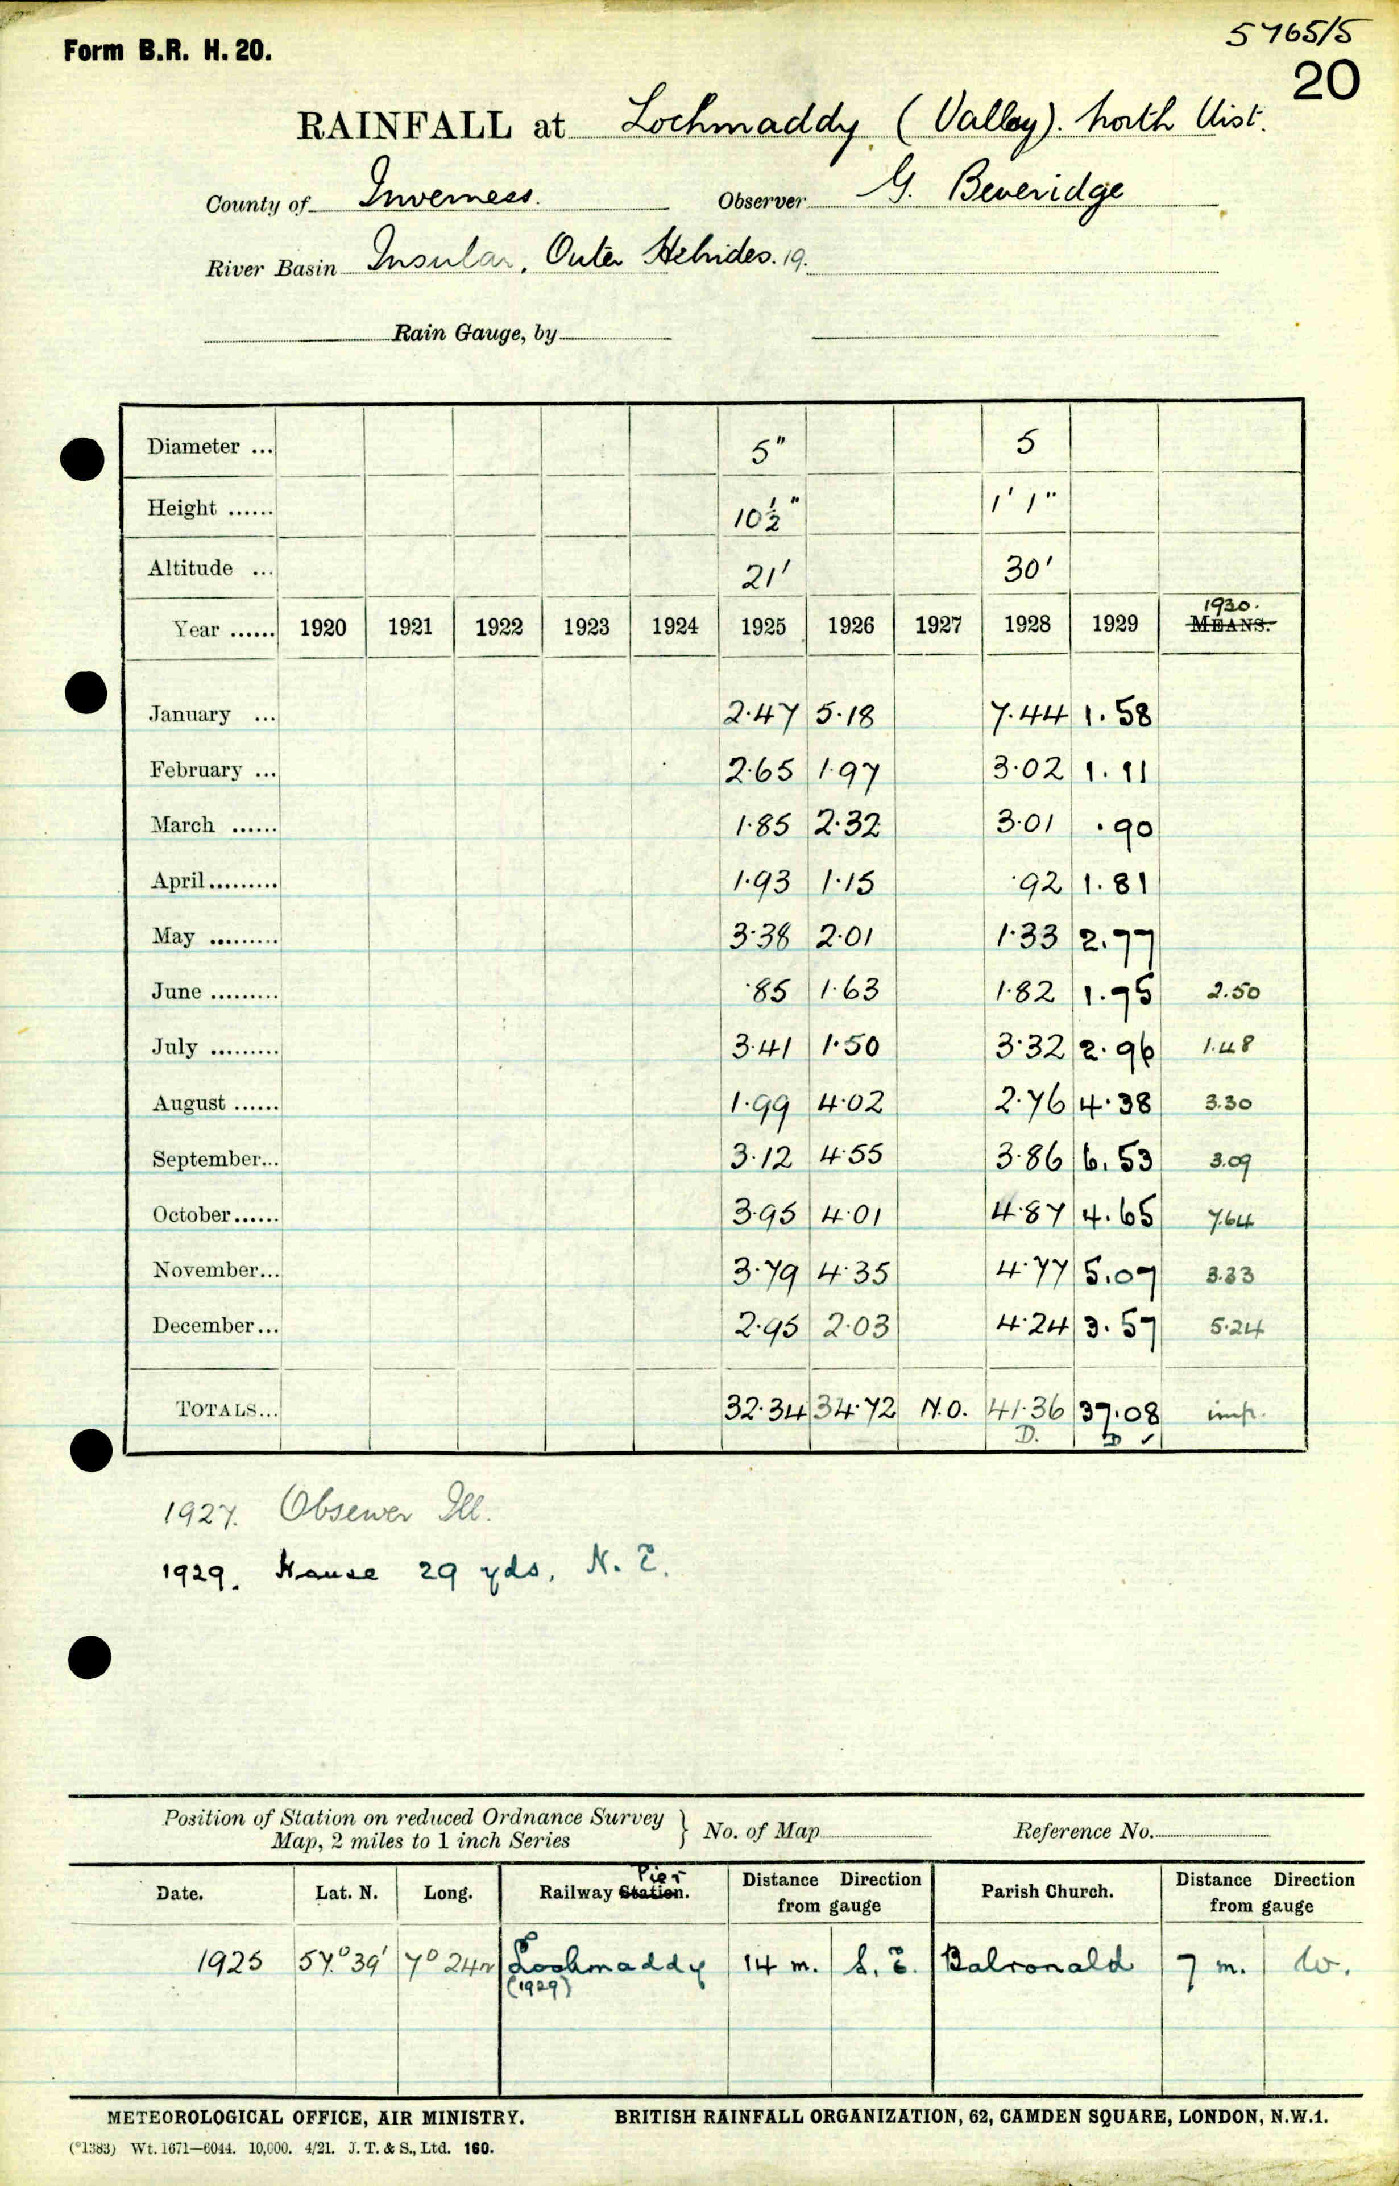 Form B.R. H. 20.
5765/5
20
RAINFALL at Lochmaddy (Valley). North Uist.
County of Inverness. Observer G. Beveridge
River Basin Insular, Outer Hebrides. 19.
Rain Gauge, by
Diameter ... 5" 5
Height ...... 10½" 1' 1"
Altitude ... 21' 30'
1930.
Year ...... 1920 1921 1922 1923 1924 1925 1926 1927 1928 1929 MEANS.
January ... 2.47 5.18 7.44 1.58
February ... 2.65 1.97 3.02 1.91
March ...... 1.85 2.32 3.01 .90
April ......... 1.93 1.15 .92 1.81
May ......... 3.38 2.01 1.33 2.77
June ......... .85 1.63 1.82 1.75 2.50
July ......... 3.41 1.50 3.32 2.96 1.48
August ...... 1.99 4.02 2.76 4.38 3.30
September... 3.12 4.55 3.86 6.53 3.09
October...... 3.95 4.01 4.87 4.65 7.64
November... 3.79 4.35 4.77 5.07 3.33
December... 2.95 2.03 4.24 3.57 5.24
TOTALS... 32.34 34.72 N.O. 41.36 37.08 imp.
D. D ✓
1927. Observer Ill.
1929. House 29 yds, N. E.
Position of Station on reduced Ordnance Survey
Map, 2 miles to 1 inch Series } No. of Map Reference No.
Pier
Date. Lat. N. Long. Railway Station. Distance Direction from gauge Parish Church. Distance Direction from gauge
1925 57.° 39' 7° 24 W Lochmaddy 14 m. S. E. Balronald 7 m. W.
(1929)
METEOROLOGICAL OFFICE, AIR MINISTRY. BRITISH RAINFALL ORGANIZATION, 62, CAMDEN SQUARE, LONDON, N.W.1.
(°1383) Wt. 1671—6044. 10,000. 4/21. J. T. & S., Ltd. 160.